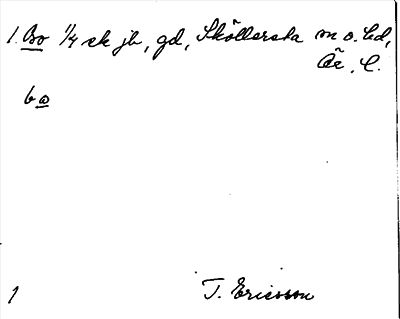 1. Bo 1/4 sk jb, gd, Sköllersta sn o. hd,
Ör. l.
bo
1 T. Ericsson